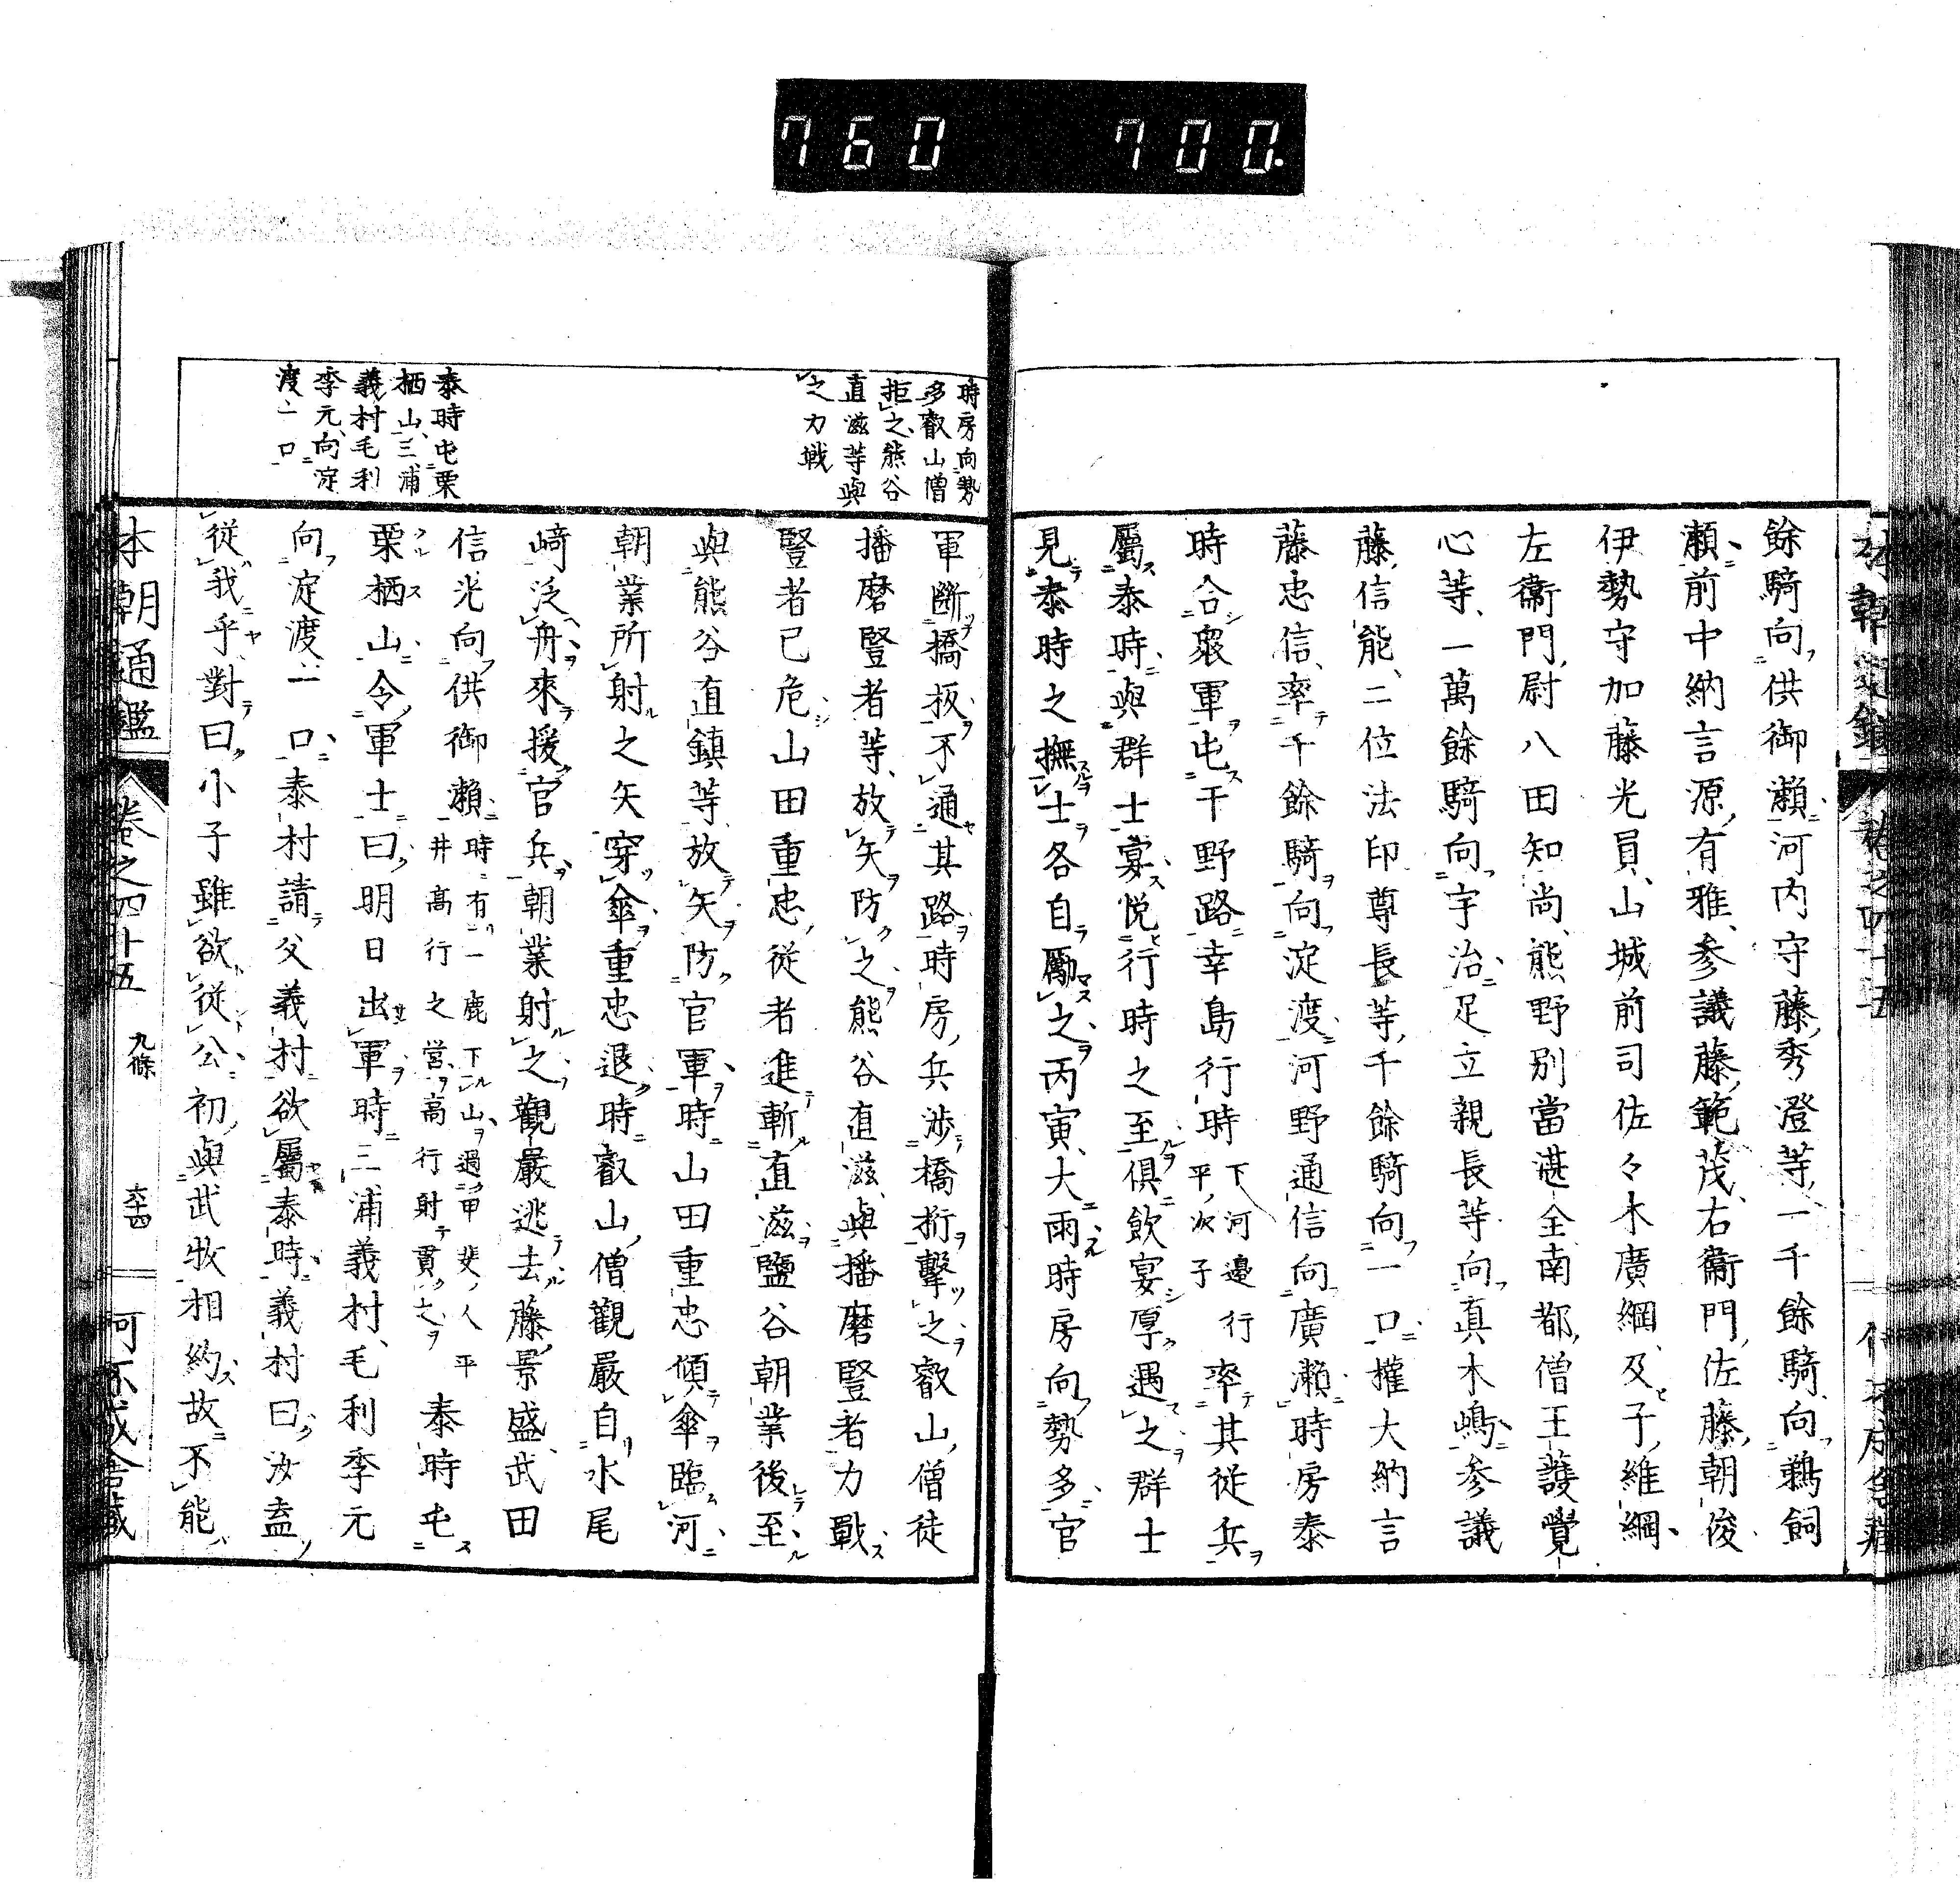 760 700.
餘騎向供御瀬河内守藤秀澄等一千餘騎向鵜飼
瀬前中納言源有雅参議藤範茂右衞門佐藤朝俊
伊勢守加藤光員山城前司佐々木廣綱及子維綱
左衞門尉八田知尚熊野別當湛全南都僧王護覺
心等一萬餘騎向宇治足立親長等向真木嶋参議
藤信能二位法印尊長等千餘騎向一口權大納言
藤忠信率千餘騎向淀渡河野通信向廣瀬時房泰
時合衆軍屯干野路幸島行時下河邊行平次子率其従兵
屬泰時與群士宴悦行時之至俱飲宴厚遇之群士
見泰時之撫士各自勵之丙寅大雨時房向勢多官
時房向勢
多叡山僧
拒之熊谷
直滋等與
之力戦
軍断橋板不通其路時房兵渉橋桁擊之叡山僧徒
播磨豎者等放矢防之熊谷直滋與播磨豎者力戰
豎者已危山田重忠従者進斬直滋鹽谷朝業後至
與熊谷直鎮等放矢防官軍時山田重忠傾傘臨河
朝業所射之矢穿傘重忠退時叡山僧觀嚴自水尾
﨑泛舟來援官兵朝業射之觀嚴逃去藤景盛武田
信光向供御瀬時有一鹿下山過甲斐人平井高行之営高行射貫之泰時屯
栗栖山令軍士曰明日出軍時三浦義村毛利季元
向淀渡一口泰村請父義村欲屬泰時義村曰汝盍
従我乎對曰小子雖欲従公初與武牧相約故不能
泰時屯栗
栖山三浦
義村毛利
季元向淀
渡一口
本朝通鑑 卷之四十五 九條 六十四